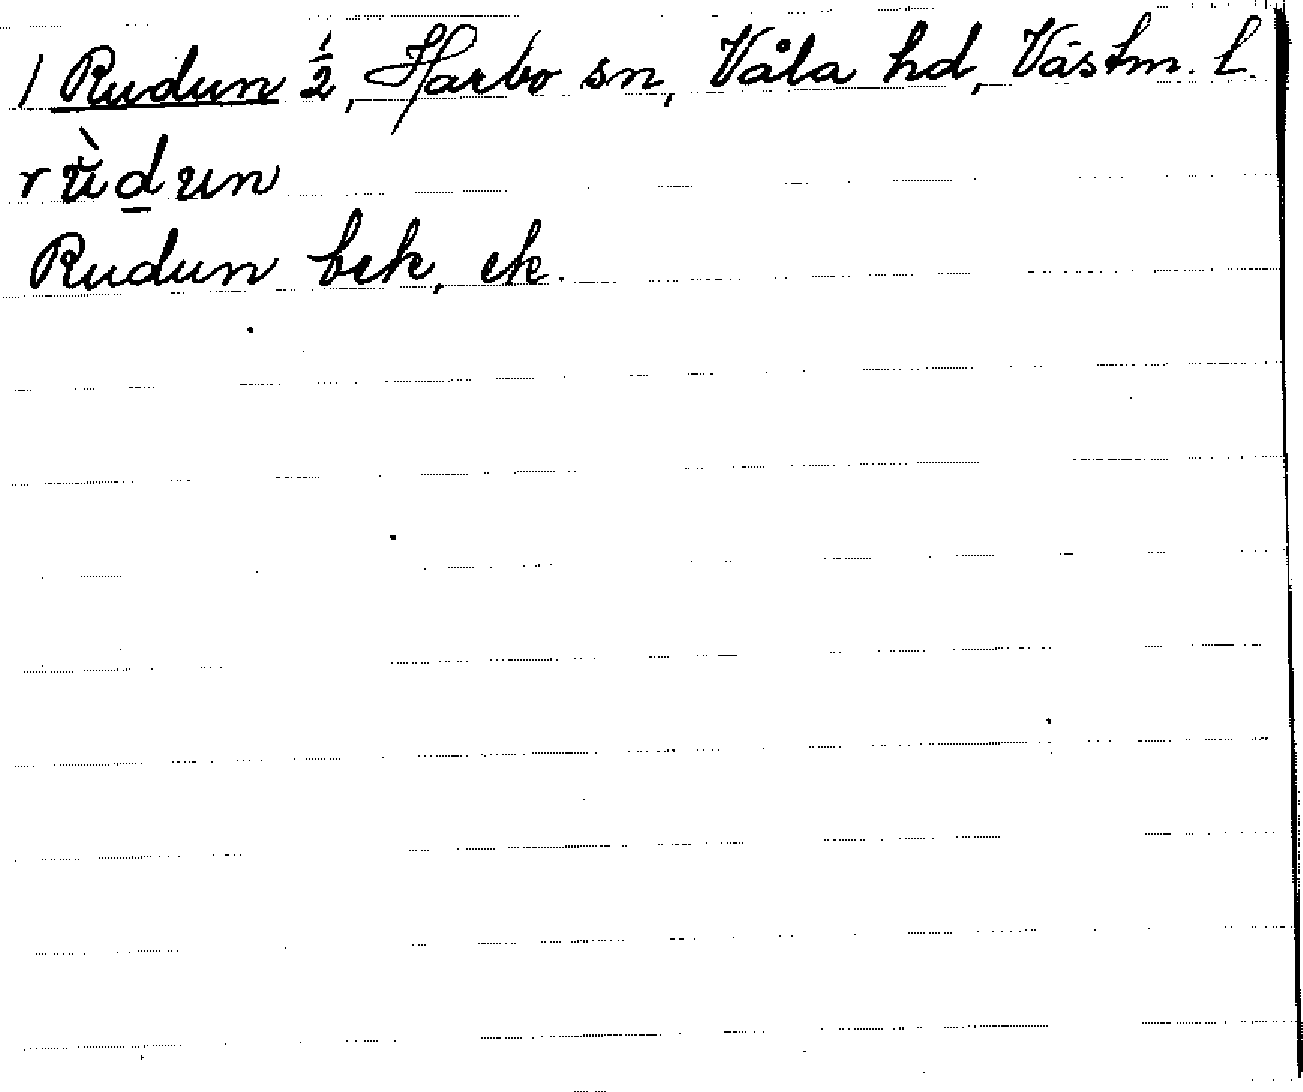 / Rudun ½, Harbo sn, Våla hd, Västm. l.
rùḏun
Rudun bek, ek.